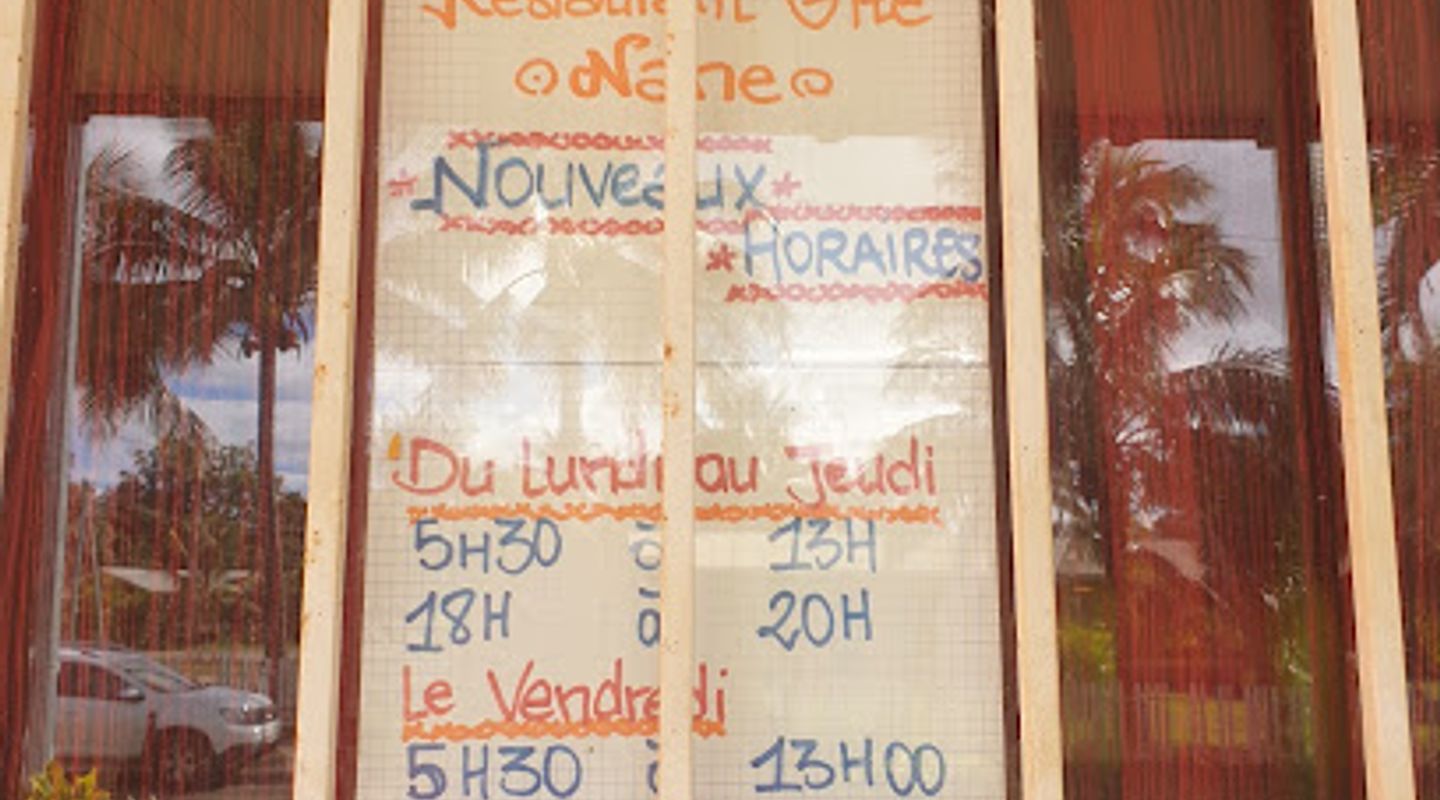 Restaurant Gîte
Nane
*Nouveaux*
*HORAIRES
Du Lundi au Jeudi
5H30 à 13H
18H à 20H
Le Vendredi
5H30 à 13H00